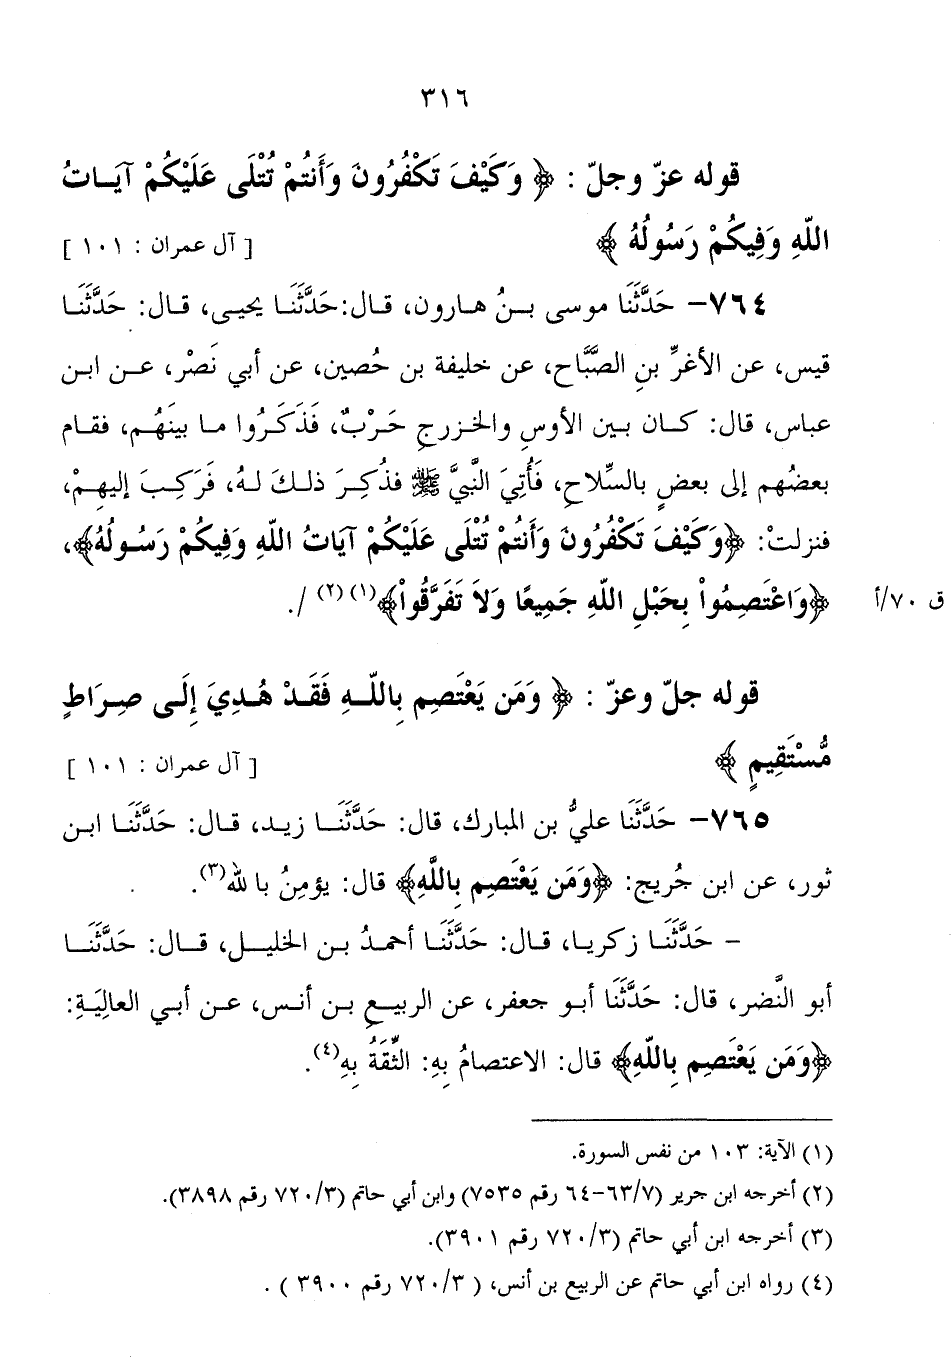 ٣١٦
قوله عزّ وجلّ : ﴿ وَكَيْفَ تَكْفُرُونَ وَأَنتُمْ تُتْلَى عَلَيْكُمْ آيَـاتُ
اللّهِ وَفِيكُمْ رَسُولُهُ ﴾ [ آل عمران : ١٠١ ]
٧٦٤– حَدَّثَنَا موسى بـنُ هـارون، قـال: حَدَّثَنَـا يحيـى، قـال: حَدَّثَنَـا
قيس، عن الأغرِّ بنِ الصَّبَّاح، عن خليفة بن حُصين، عن أبي نَصْر، عـن ابـن
عباس، قال: كـان بـين الأوسِ والخـزرجِ حَـرْبٌ، فَذَكَـرُوا مـا بينَهُـم، فقـام
بعضُهم إلى بعضٍ بالسِّلاحِ، فَأُتِيَ النَّبيَّ ﷺ فذُكِـرَ ذلـكَ لـهُ، فَرَكِـبَ إليهِـمْ،
فنزلتْ: ﴿وَكَيْفَ تَكْفُرُونَ وَأَنتُمْ تُتْلَى عَلَيْكُمْ آيَاتُ اللّهِ وَفِيكُمْ رَسُـولُهُ﴾،
﴿وَاعْتَصِمُواْ بِحَبْلِ اللّهِ جَمِيعًا وَلاَ تَفَرَّقُواْ﴾(١) (٢) /. ق ٧٠/أ
قوله جلّ وعزّ : ﴿ وَمَن يَعْتَصِم بِاللّـهِ فَقَـدْ هُـدِيَ إِلَـى صِـرَاطٍ
مُّسْتَقِيمٍ ﴾ [ آل عمران : ١٠١ ]
٧٦٥– حَدَّثَنَا عليُّ بن المبارك، قال: حَدَّثَنَـا زيـد، قـال: حَدَّثَنَـا ابـن
ثور، عن ابن جُريج: ﴿وَمَن يَعْتَصِم بِاللَّهِ﴾ قال: يؤمِنُ با لله(٣).
– حَدَّثَنَـا زكريـا، قـال: حَدَّثَنَـا أحمـدُ بـن الخليـل، قـال: حَدَّثَنَـا
أبو النَّضر، قال: حَدَّثَنَا أبـو جعفر، عن الربيـعِ بـن أنـس، عـن أبـي العاليَـةِ:
﴿وَمَن يَعْتَصِم بِاللّهِ﴾ قال: الاعتصامُ بِهِ: الثِّقَةُ بِهِ(٤).
(١) الآية: ١٠٣ من نفس السورة.
(٢) أخرجه ابن جرير (٦٣/٧–٦٤ رقم ٧٥٣٥) وابن أبي حاتم (٧٢٠/٣ رقم ٣٨٩٨).
(٣) أخرجه ابن أبي حاتم (٧٢٠/٣ رقم ٣٩٠١).
(٤) رواه ابن أبي حاتم عن الربيع بن أنس، ( ٧٢٠/٣ رقم ٣٩٠٠ ) .